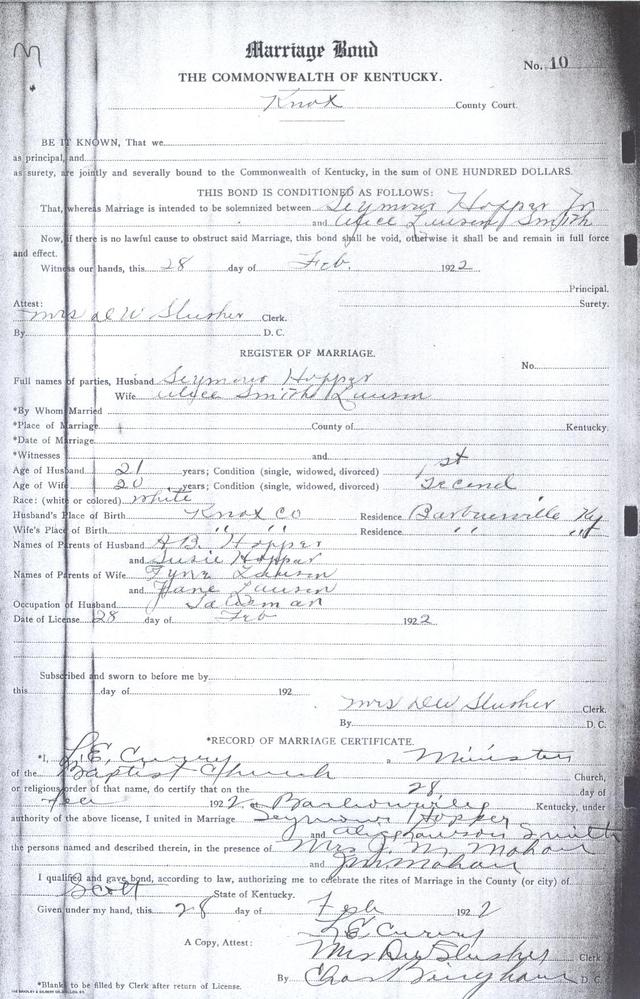 Marriage Bond
No. 10
THE COMMONWEALTH OF KENTUCKY.
Knox County Court.
BE IT KNOWN, That we
as principal, and
as surety, are jointly and severally bound to the Commonwealth of Kentucky, in the sum of ONE HUNDRED DOLLARS.
THIS BOND IS CONDITIONED AS FOLLOWS:
That, whereas Marriage is intended to be solemnized between Seymour Hopper Jr
and Alice Lawson Smith
Now, if there is no lawful cause to obstruct said Marriage, this bond shall be void, otherwise it shall be and remain in full force
and effect.
Witness our hands, this 28 day of Feb. 1922
Principal.
Surety.
Attest:
Mrs D W Slusher Clerk.
By D. C.
REGISTER OF MARRIAGE.
No.
Full names of parties, Husband Seymour Hopper
Wife Alice Smith Lawson
*By Whom Married
*Place of Marriage County of Kentucky.
*Date of Marriage
*Witnesses and
Age of Husband 21 years; Condition (single, widowed, divorced) 1st
Age of Wife 20 years; Condition (single, widowed, divorced) Second
Race: (white or colored) White
Husband's Place of Birth Knox Co Residence Barbourville Ky
Wife's Place of Birth " " Residence " "
Names of Parents of Husband A B Hopper
and Susie Hopper
Names of Parents of Wife Lawson
and Jane Lawson
Occupation of Husband Salesman
Date of License 28 day of Feb 1922
Subscribed and sworn to before me by
this day of 192
Mrs D W Slusher Clerk.
By D. C.
*RECORD OF MARRIAGE CERTIFICATE.
*I, L. E. Curry, a Minister
of the Baptist Church Church,
or religious order of that name, do certify that on the 28 day of
Feb 1922, at Barbourville Kentucky, under
authority of the above license, I united in Marriage Seymour Hopper
and Alice Lawson Smith
the persons named and described therein, in the presence of Mrs J. M. Mahan
and J M Mahan
I qualified and gave bond, according to law, authorizing me to celebrate the rites of Marriage in the County (or city) of
Scott State of Kentucky.
Given under my hand, this 28 day of Feb 1922
L E Curry
A Copy, Attest: Mrs D W Slusher Clerk
By Chas Bingham D. C.
*Blanks to be filled by Clerk after return of License.